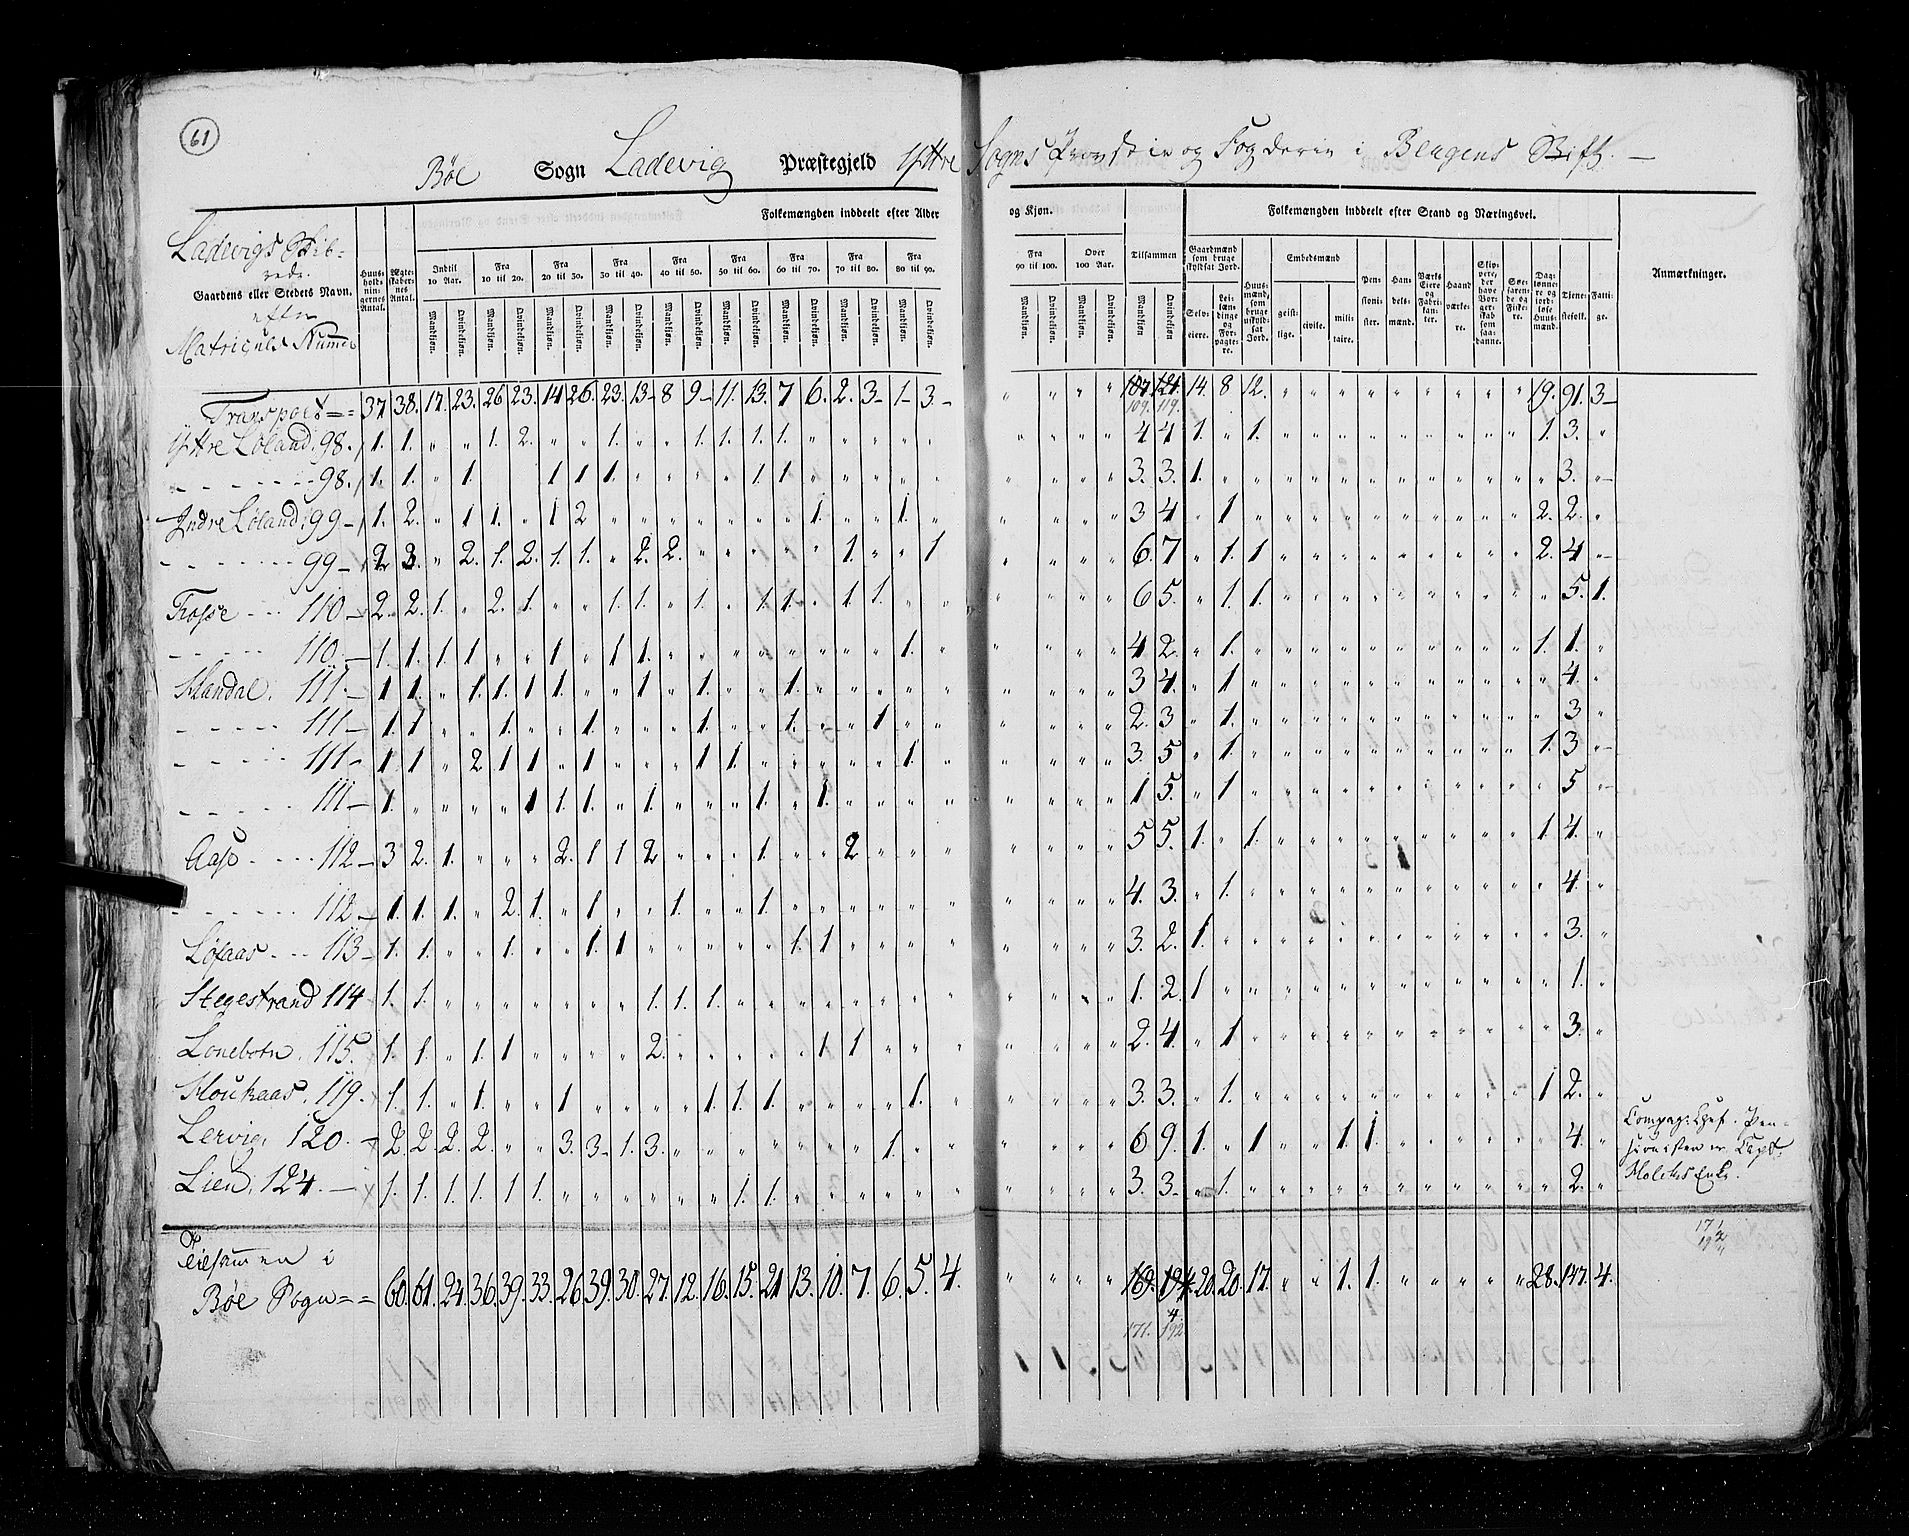 61
Bøe Sogn Ladevig Præstegjeld Yttre Sogns Provstie og Fogderie i Bergens Stift. —
Ladevigs Skib-
rede.
Gaardens eller Stedets Navn.
efter
Matriculs Numer
Huus-
hold-
nin-
gernes
Antal.
Ægte-
skaber-
nes
Antal.
Folkemængden inddeelt efter Alder og Kjøn.
Indtil 10 Aar. Fra 10 til 20. Fra 20 til 30. Fra 30 til 40. Fra 40 til 50. Fra 50 til 60. Fra 60 til 70. Fra 70 til 80. Fra 80 til 90. Fra 90 til 100. Over 100 Aar. Tilsammen
Mandkjøn. Qvindekjøn. Mandkjøn. Qvindekjøn. Mandkjøn. Qvindekjøn. Mandkjøn. Qvindekjøn. Mandkjøn. Qvindekjøn. Mandkjøn. Qvindekjøn. Mandkjøn. Qvindekjøn. Mandkjøn. Qvindekjøn. Mandkjøn. Qvindekjøn. Mandkjøn. Qvindekjøn. Mandkjøn. Qvindekjøn. Mandkjøn Qvindekjøn.
Folkemængden inddeelt efter Stand og Næringsvei.
Gaardmænd
som bruge
skyldsat Jord.
Selv-
eiere.
Lei-
læn-
dinge
og
For-
pagte-
re.
Huus-
mænd,
som
bruge
uskyld-
sat
Jord.
Embedsmænd
geist-
lige.
civile.
mili-
taire.
Pen-
sioni-
ster.
Han-
dels-
mænd.
Værks
Eiere
og
Fabri-
kan-
ter.
Haand
værke-
re.
Skip-
pere,
der
have
Bor-
ger-
skab
som
saa-
danne.
Søe-
faren-
de og
Fiske-
re.
Dag-
lønne-
re og
jord-
løse
Huus-
mænd.
Tjene-
stefolk.
Fatti-
ge.
Anmærkninger.
Transport 37 38. 17. 23. 26 23. 14 26. 23. 13 8 9 11. 13. 7 6. 2. 3. 1 3. " " " " 107. 121. 14. 8 12. " " " " " " " " " 19. 91. 3
109. 119.
Yttre Løland. 98. 1. 1. " " 1. 2. " " 1. " " 1. 1. 1. 1. " " " " " " " " " 4 4 1. " 1. " " " " " " " " " 1. 3. "
98. 1. 1. " 1. 1 1 1. " " " " 1 1. " " " " " " " " " 3. 3. 1. " " " " " " " " " " " " 3. "
Indre Løland. 99 1. 2. " 1 1. " 1 2 " " " " " " " 1. " " 1. " " " " " 3 4 " 1 " " " " " " " " " " 2. 2. "
99 2 3. " 2. 1. 2. 1. 1. " 2. 2. " " " " " 1. " " 1 " " " " 6. 7 " 1. 1 " " " " " " " " " 2. 4 "
110 2. 2. 1. " 2. 1. " " 1. 1. " 1. " 1. 1. " 1. 1. " " " " " " 6 5. " 1. 1. " " " " " " " " " " 5. 1.
110. 1. 1. 1. 1 " " 1 " 1 1. " " " " " " " " 1. " " " " " 4 2. " 1. " " " " " " " " " " 1. 1. "
Standal. 111. 1 1. " 1. 1. 1 1. " " 1 " 1. " " 1. " " " " " " " " " 3 4. " 1 " " " " " " " " " " " 4. "
111 1. 1 " " 1. " " 1 " " " 1. " " 1. " " 1 " " " " " " 2. 3 " 1. " " " " " " " " " " " 3 "
111 1. 1 " 2 1 1 " 1. " " " 1 1. " " " " " 1. " " " " " 3. 5 " 1. " " " " " " " " " " 1. 3 "
111 1. " " " " 1 1. 1. " 1. " " " 1. " 1. " " " " " " " " 1 5. " 1 " " " " " " " " " " " 5 "
112 3 2. 1. " " " 2. 1 1 2 " " " 1. " " 2 " " " " " " " 5 5. 1. " 1. " " " " " " " " " 1 4. "
112 1. 1. 1. " 2. 1. " 1. " " 1. " " 1. " " " " " " " " " " 4. 3. " 1. " " " " " " " " " " " 4. "
113 1. 1. " " 1. " " 1. 1 " " " " " 1. 1. " " " " " " " " 3. 2. 1. " " " " " " " " " " " " 3. "
Stegestrand 114 1. 1. " " " " " " " 1. 1. 1. " " " " " " " " " " " " 1. 2. 1 " " " " " " " " " " " " 1. "
Lonebotn. 115. 1. 1. " 1. 1 " " " " 2. " " " " " 1. 1 " " " " " " " 2. 4. " 1 " " " " " " " " " " " 3. "
119. 1. 1. " 1. " " 1 " " " " 1. 1. 1. " " " " 1. " " " " " 3. 3. " 1. " " " " " " " " " " 1 2. "
Lervig. 120. 2. 2. 2. 2. " " 3. 3 1. 3. " " " " " " " 1. " " " " " " 6 9. 1. " 1 " " 1 1. " " " " " " 4. " Compag: Chef. Pen-
sionisten er Capt.
Holcks Enke.
Lien. 124. 1. 1. 1. 1. 1. 1. " " " " " " 1. 1. " " " " " " " " " " 3. 3. " 1. " " " " " " " " " " " 2. "
Tilsammen i
Bøe Sogn 60. 61. 24. 36. 39. 33. 26. 39. 30. 27. 12. 16. 15. 21 13. 10. 7. 6. 5. 4. " " " " 169. 194. 20. 20. 17. " " 1. 1. " " " " " 28. 147. 4.
171. 192